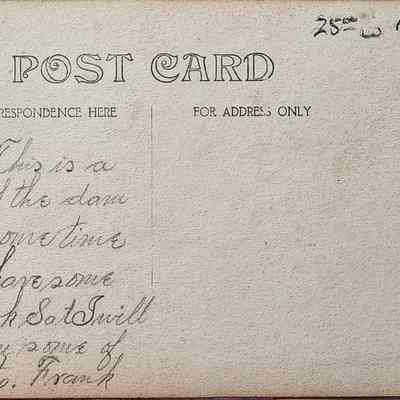 25⁰⁰
POST CARD
RESPONDENCE HERE
FOR ADDRESS ONLY
This is a
the dam
ometime
have some
k Sat I will
some of
o. Frank